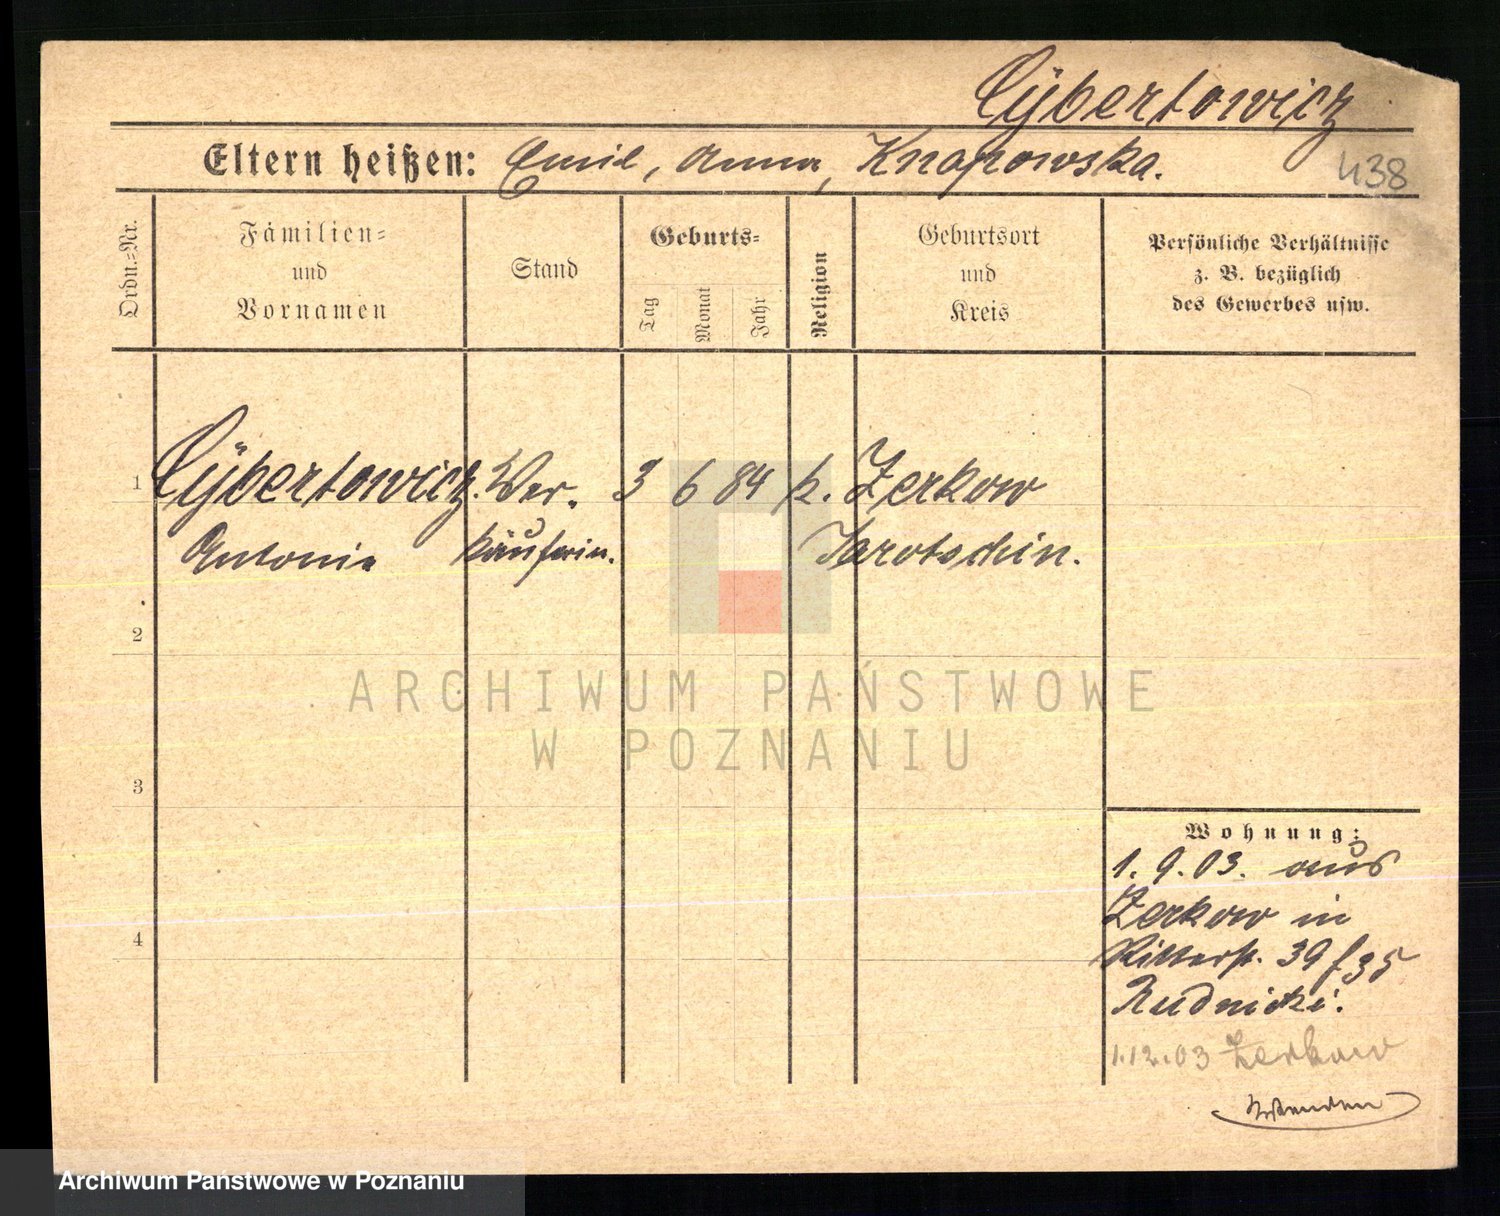 Cÿbertowicz
Eltern heißen: Emil, Anna, Knapowska.
438
Ordn.=Nr.
Familien=
und
Vornamen
Stand
Geburts=
Tag
Monat
Jahr
Religion
Geburtsort
und
Kreis
Persönliche Verhältnisse
z. B. bezüglich
des Gewerbes usw.
1 Cÿbertowicz. Ver- 3 6 84 k. Zerkow
Antonie käuferin. Jarotschin.
2
ARCHIWUM PAŃSTWOWE
W POZNANIU
3
Wohnung:
1.9.03. aus
Zerkow in
4
Ritterst. 39 f 35
Rudnicki.
1.12.03 Zerkow
Wenden
Archiwum Państwowe w Poznaniu